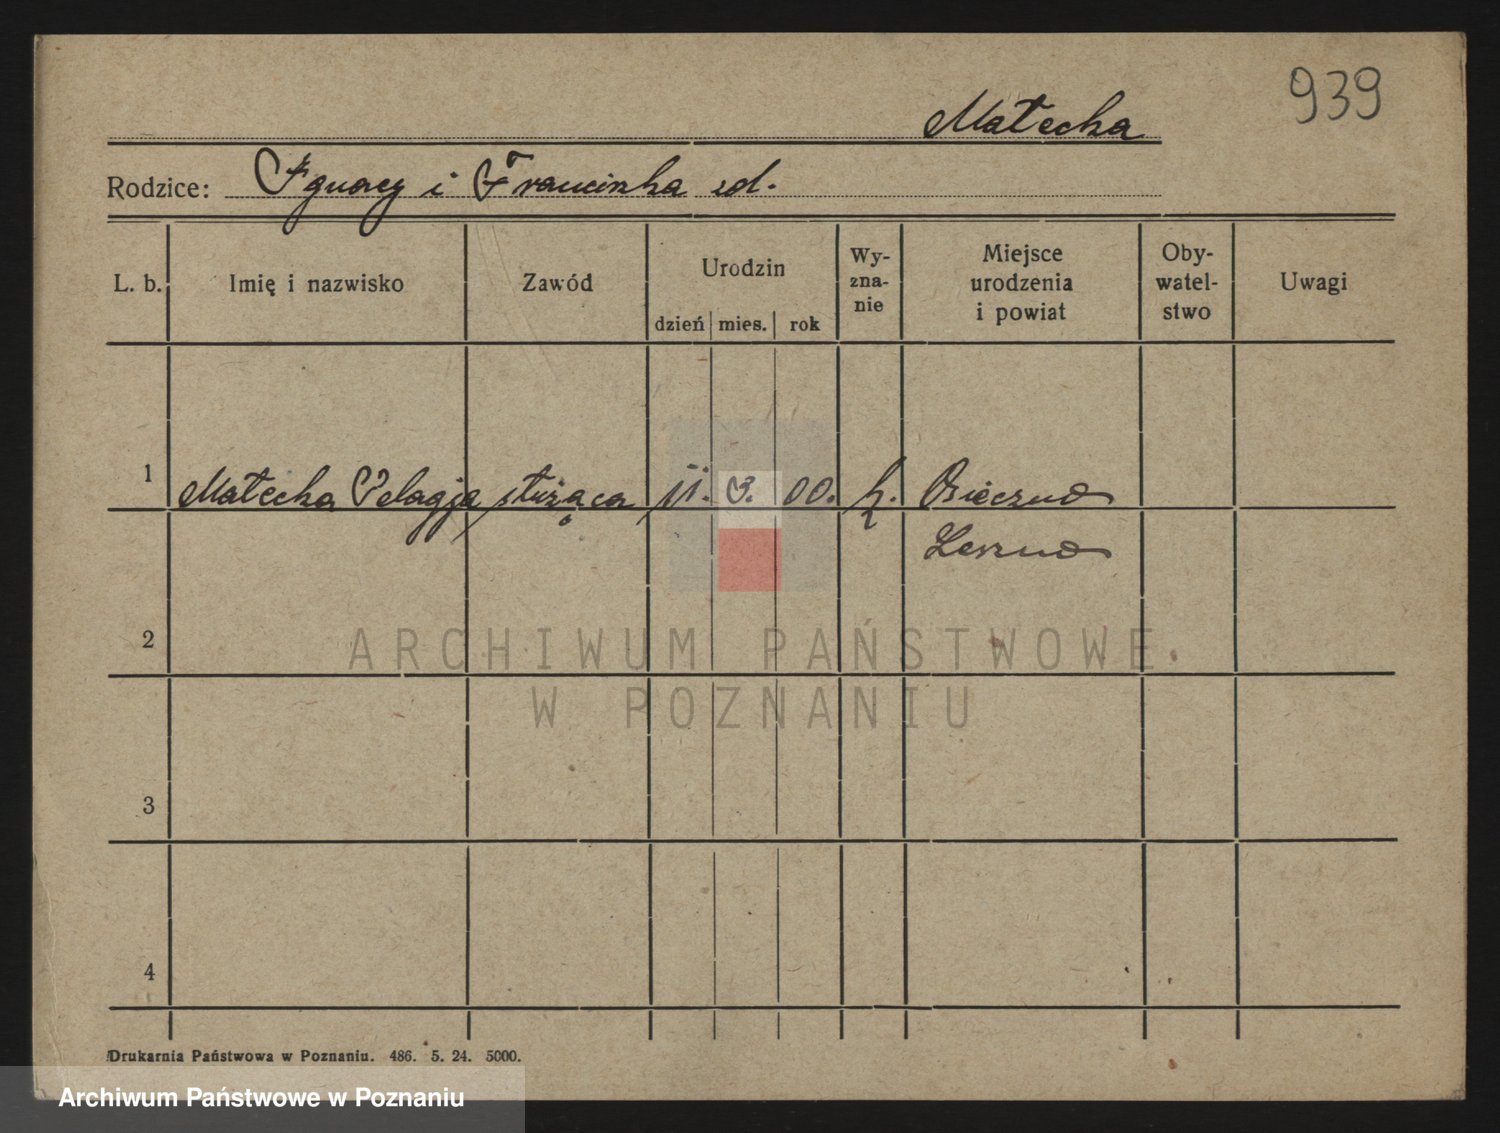 939
Małecka
Rodzice: Ignacy i Franciszka zd.
L. b. Imię i nazwisko Zawód Urodzin dzień mies. rok Wy- zna- nie Miejsce urodzenia i powiat Oby- watel- stwo Uwagi
1 Małecka Pelagja służąca 11. 3. 00. k.
Leszno
2
3
4
ARCHIWUM PAŃSTWOWE
W POZNANIU
Drukarnia Państwowa w Poznaniu. 486. 5. 24. 5000.
Archiwum Państwowe w Poznaniu